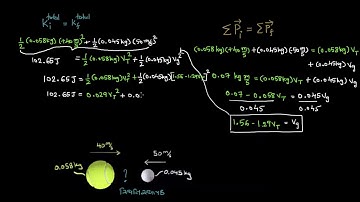 K_i^total = K_f^total
½(0.058kg)(+40 m/s)² + ½(0.045kg)(50 m/s)²
102.65J = ½(0.058kg)V_T² + ½(0.045kg)V_g²
102.65J = ½(0.058kg)V_T² + ½(0.045kg)[1.56-1.29V_T]²
102.65J = 0.029V_T² + 0.0
ΣP_i = ΣP_f
(0.058kg)(+40 m/s) + (0.045kg)(-50 m/s) = (0.058kg)V_T
+ (0.045kg)V_g
0.07 kg m/s = (0.058kg)V_T + (0.045kg)V_g
0.07 - 0.058V_T = 0.045V_g
0.045 0.045
1.56 - 1.29V_T = V_g
40 m/s
50 m/s
0.058kg
?
0.045kg